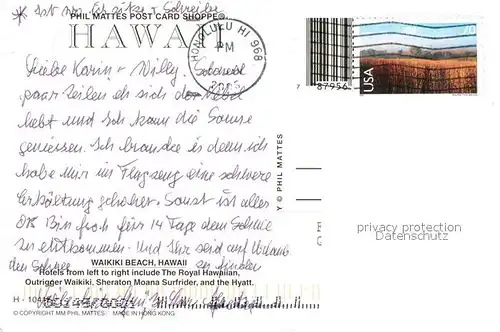 * Ist
PHIL MATTES POST CARD SHOPPE®
HAWAII
HONOLULU HI 968
PM
USA
70
87956
Liebe Karin + Willy. Schnell
paar Zeilen eh sich der Nebel
hebt und ich kann die Sonne
geniessen. Ich brauche es denn ich
habe mir im Flugzeug eine schwere
Erkältung geholt. Sonst ist alles
OK Bin froh für 14 Tage dem Schnee
zu entkommen. und Ihr seid auf Urlaub
den Schnee zu finden
WAIKIKI BEACH, HAWAII
Hotels from left to right include The Royal Hawaiian,
Outrigger Waikiki, Sheraton Moana Surfrider, and the Hyatt.
H - 104
© COPYRIGHT MM PHIL MATTES / MADE IN HONG KONG
Y © PHIL MATTES
privacy protection
Datenschutz